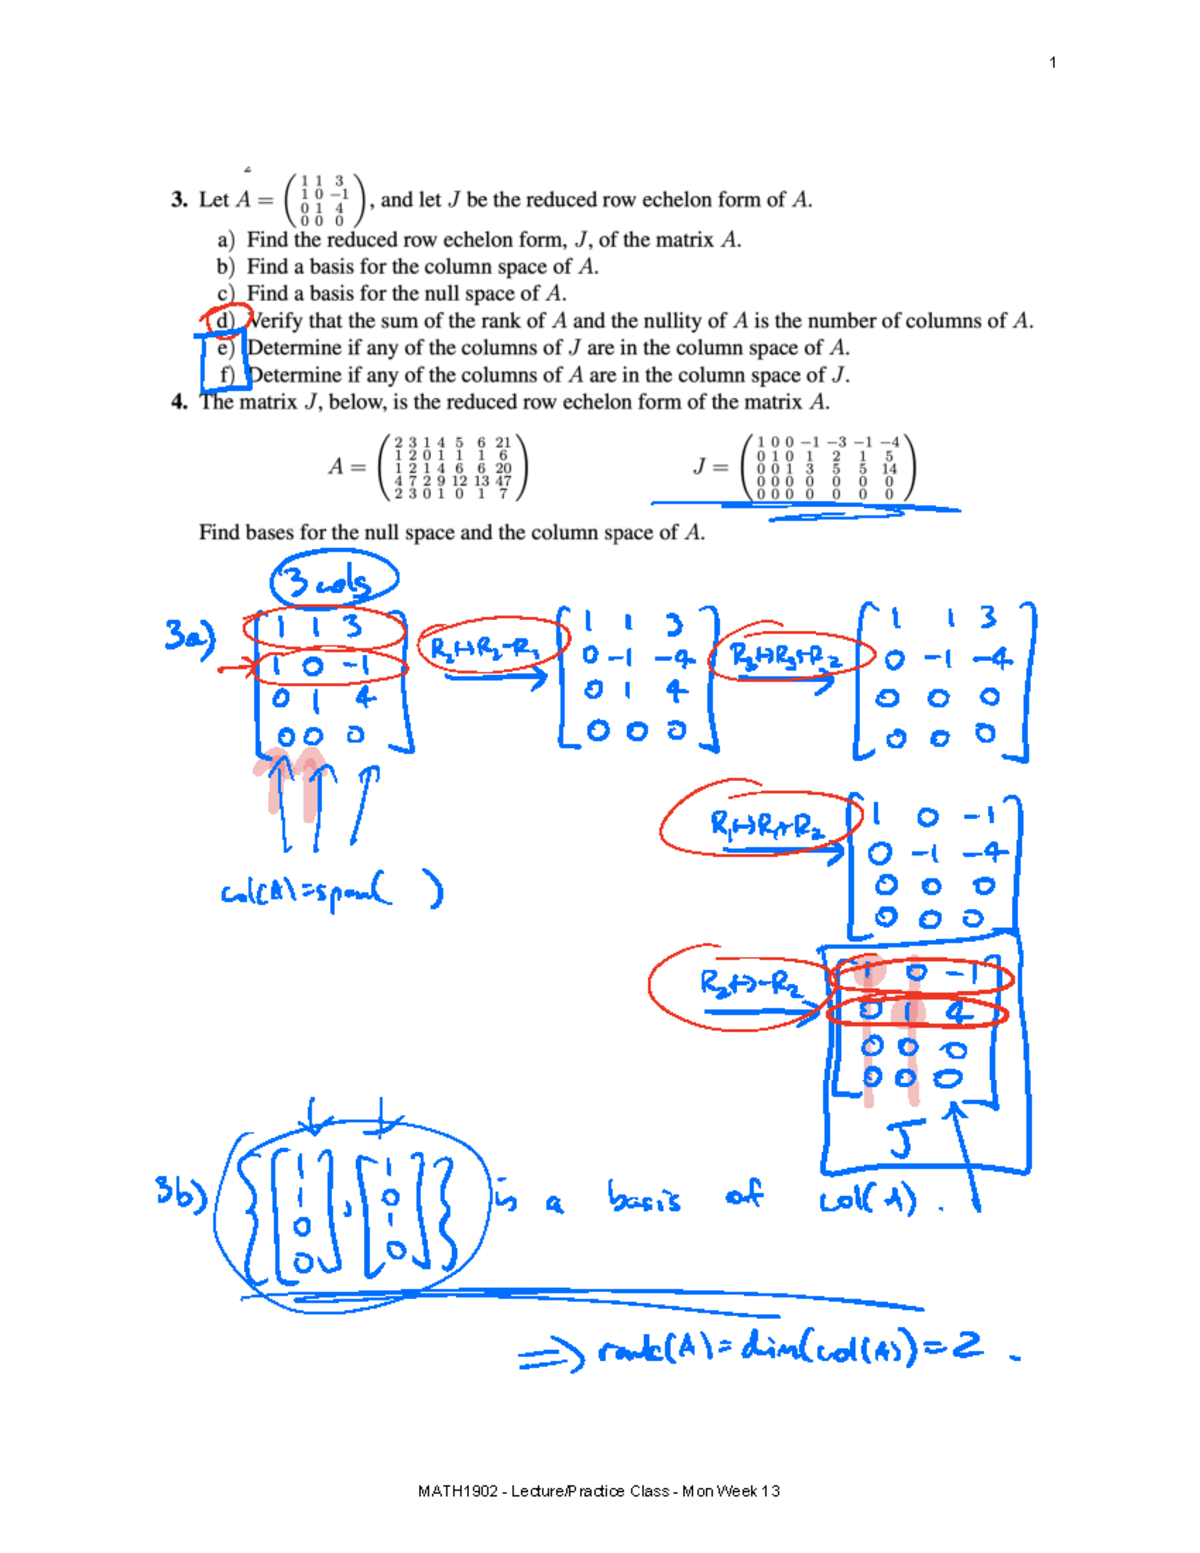 1
3. Let A = ( 1 1 3
1 0 −1
0 1 4
0 0 0 ), and let J be the reduced row echelon form of A.
a) Find the reduced row echelon form, J, of the matrix A.
b) Find a basis for the column space of A.
c) Find a basis for the null space of A.
d) Verify that the sum of the rank of A and the nullity of A is the number of columns of A.
e) Determine if any of the columns of J are in the column space of A.
f) Determine if any of the columns of A are in the column space of J.
4. The matrix J, below, is the reduced row echelon form of the matrix A.
A = ( 2 3 1 4 5 6 21
1 2 0 1 1 1 6
1 2 1 4 6 6 20
4 7 2 9 12 13 47
2 3 0 1 0 1 7 )
J = ( 1 0 0 −1 −3 −1 −4
0 1 0 1 2 1 5
0 0 1 3 5 5 14
0 0 0 0 0 0 0
0 0 0 0 0 0 0 )
Find bases for the null space and the column space of A.
3 cols
3a) [ 1 1 3
1 0 -1
0 1 4
0 0 0 ]
R₂↔R₂-R₁
[ 1 1 3
0 -1 -4
0 1 4
0 0 0 ]
R₃↔R₃+R₂
[ 1 1 3
0 -1 -4
0 0 0
0 0 0 ]
R₁↔R₁+R₂
[ 1 0 -1
0 -1 -4
0 0 0
0 0 0 ]
col(A)=span( )
R₂↔-R₂
[ 1 0 -1
0 1 4
0 0 0
0 0 0 ]
J
3b) { [ 1
1
0
0 ] , [ 1
0
1
0 ] } is a basis of col(A).
⇒ rank(A)=dim(col(A))=2.
MATH1902 - Lecture/Practice Class - Mon Week 13